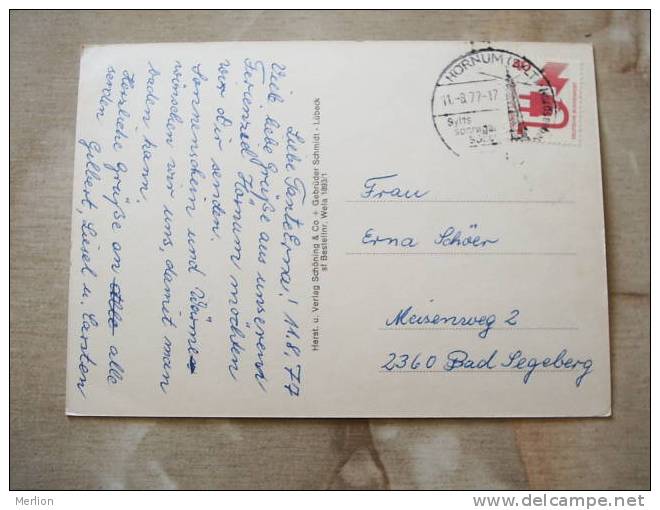 Liebe Tante Erna! 11.8.77
Viele liebe Grüße aus unserem
Ferienziel Hörnum möchten
wir Dir senden.
Sonnenschein und Wärme
wünschen wir uns, damit man
baden kann.
Herzliche Grüße an alle
senden
Gilbert, Liesel u. Carsten
Herst. u. Verlag Schöning & Co + Gebrüder Schmidt - Lübeck
sf Bestellnr. Wela 1893/1
HÖRNUM (SYLT)
11.-8.77-17
Sylts
sonnige
Frau
Erna Schöer
Meisenweg 2
2360 Bad Segeberg
Merlion
www.delcampe.net